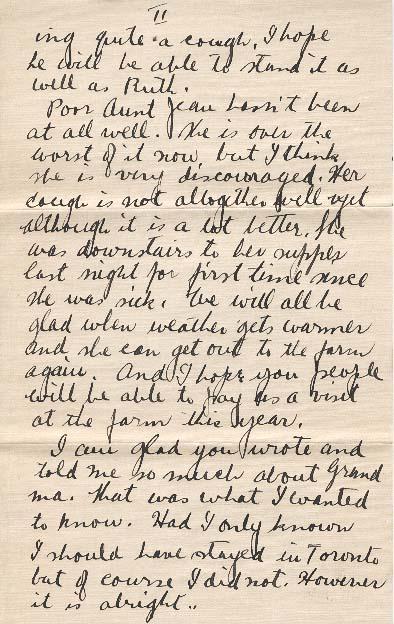 II
ing quite a cough. I hope
he will be able to stand it as
well as Ruth.
Poor Aunt Jean hasn't been
at all well. She is over the
worst of it now, but I think
she is very discouraged. Her
cough is not altogether well yet
although it is a lot better. She
was downstairs to her supper
last night for first time since
she was sick. We will all be
glad when weather gets warmer
and she can get out to the farm
again. And I hope you people
will be able to pay us a visit
at the farm this year.
I am glad you wrote and
told me so much about Grand
ma. That was what I wanted
to know. Had I only known
I should have stayed in Toronto
but of course I did not. However
it is alright..